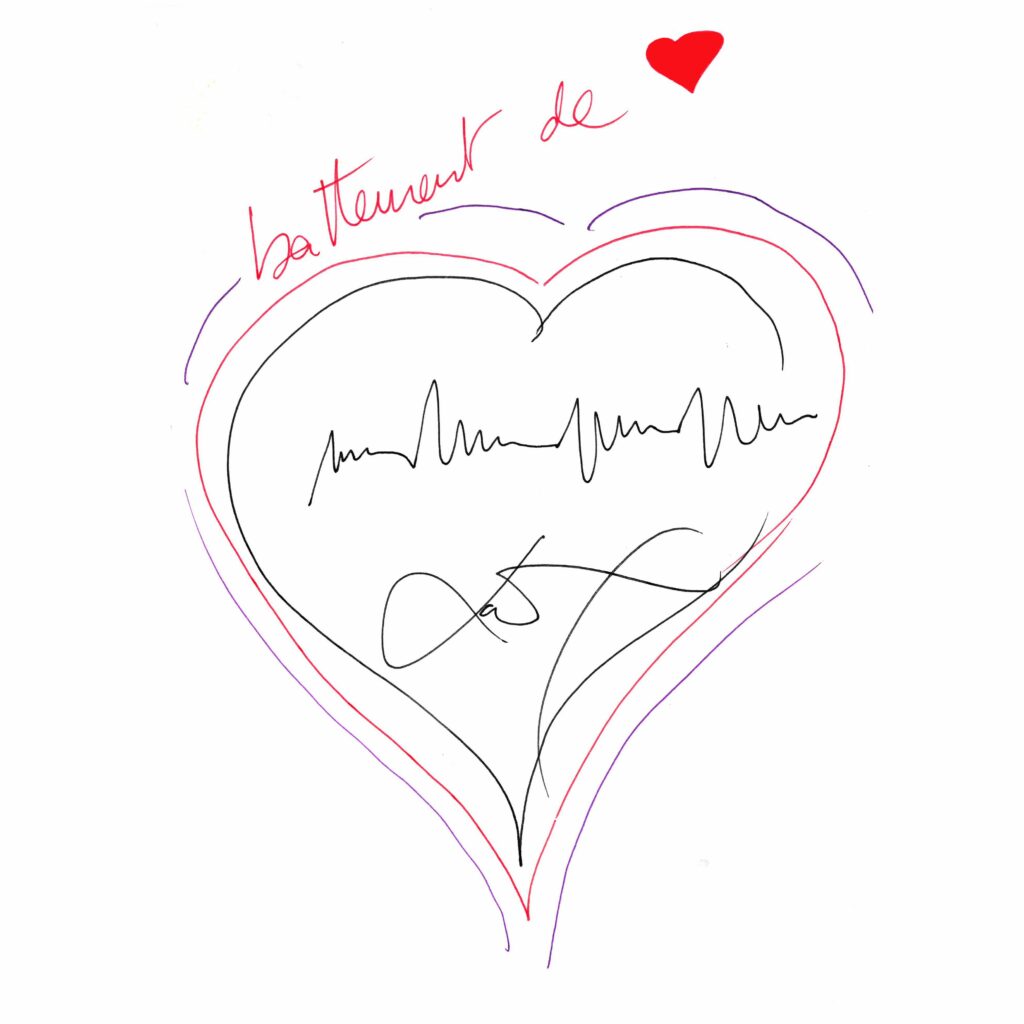 battement de ❤